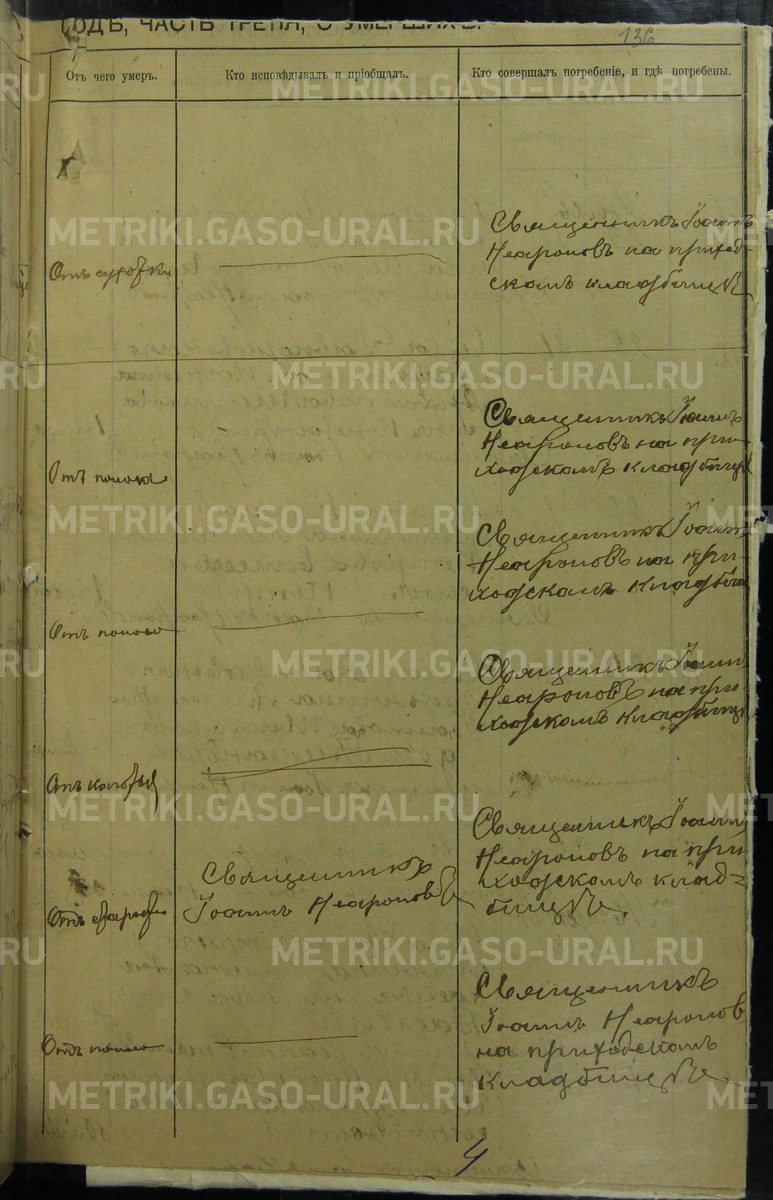 ГОДЪ, ЧАСТЬ ТРЕТІЯ, О УМЕРШИХЪ.
136
Отъ чего умеръ.
Кто исповѣдывалъ и пріобщалъ.
Кто совершалъ погребеніе, и гдѣ погребены.
Отъ сухотки
Священникъ Іоаннъ
Неапроновъ на приход-
скомъ кладбищѣ
Отъ поноса
Священникъ Іоаннъ
Неапроновъ на при-
ходскомъ кладбищѣ
Отъ поноса
Священникъ Іоаннъ
Неапроновъ на при-
ходскомъ кладби
Отъ колотья
Священникъ Іоанн
Неапроновъ на при-
ходскомъ кладбищѣ
Отъ старости
Священникъ
Іоаннъ Неапроновъ
Священникъ Іоаннъ
Неапроновъ на при
ходскомъ клад-
бищѣ.
Отъ поноса
Священникъ
Іоаннъ Неапронов
на приходскомъ
кладбищѣ
4
METRIKI.GASO-URAL.RU